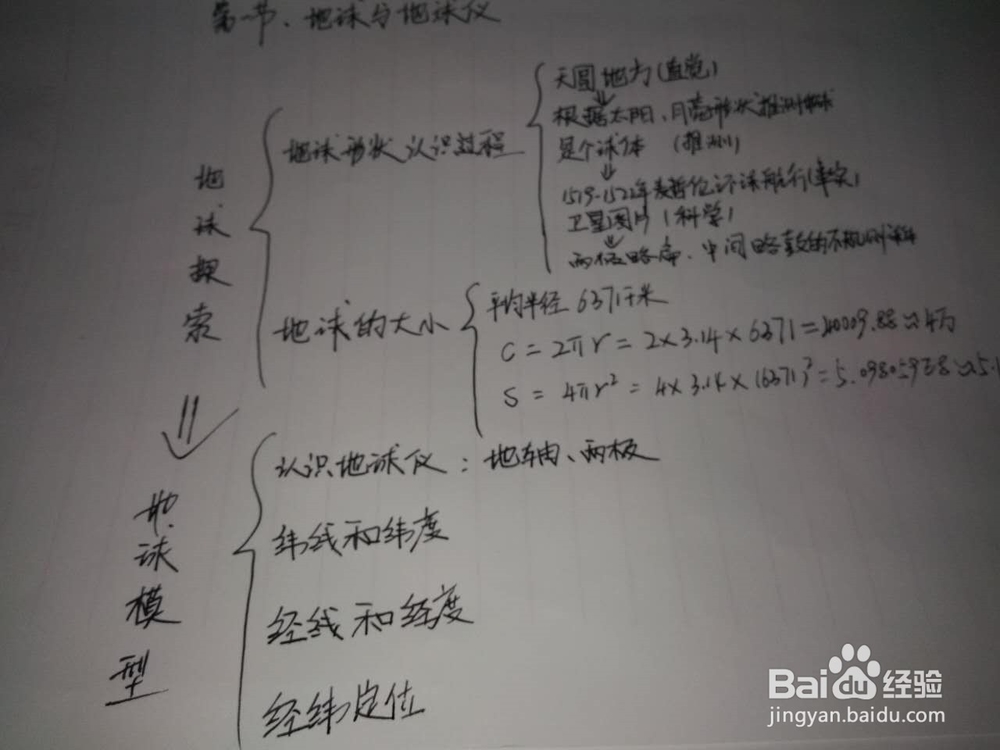 第一节、地球与地球仪
地球探索
地球形状认识过程
天圆地方(直觉)
根据太阳、月亮形状推测地球
是个球体 (推测)
1519-1522年麦哲伦环球航行(事实)
卫星图片(科学)
两极略扁、中间略鼓的不规则球体
地球的大小
平均半径 6371千米
C = 2πr = 2×3.14×6371 = 40009.88 ≈ 4万
S = 4πr² = 4×3.14×(6371)² = 5.098059E8 ≈ 5.1
地球模型
认识地球仪：地轴、两极
纬线和纬度
经线和经度
经纬定位
Baidu经验
jingyan.baidu.com